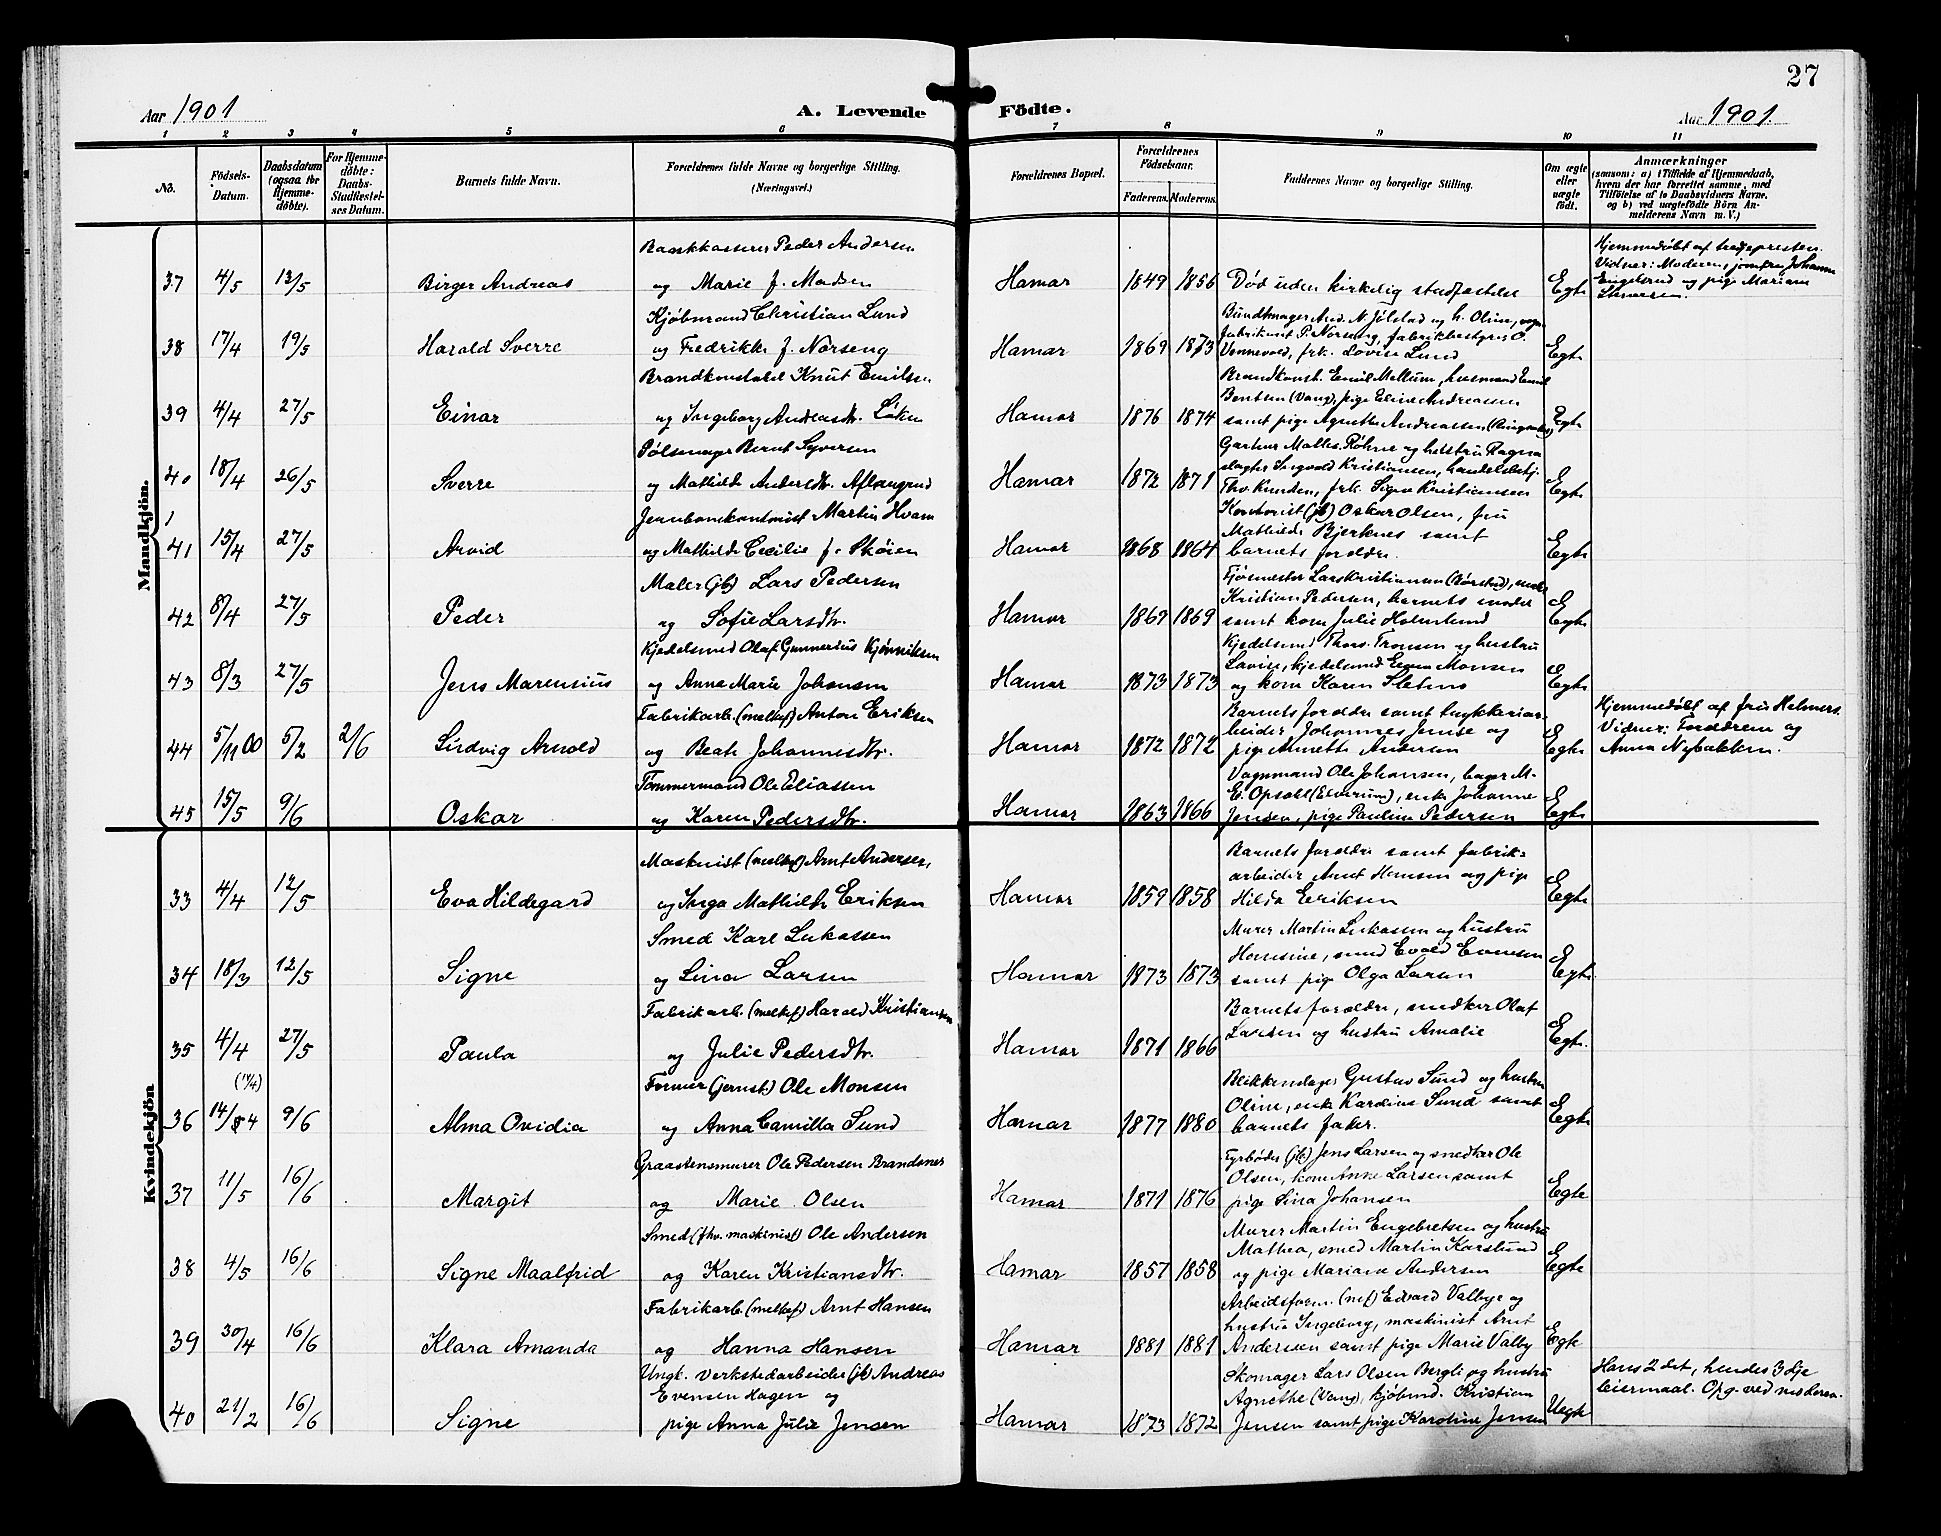 27
Aar 1901
A. Levende Födte.
Aar 1901.
1 2 3 4 5 6 7 8 9 10 11
No.
Födsels-
Datum.
Daabsdatum
(ogsaa for
Hjemme-
döbte).
For Hjemme-
döbte:
Daabs-
Stadfæstel-
ses Datum.
Barnets fulde Navn.
Forældrenes fulde Navne og borgerlige Stilling.
(Næringsvei.)
Forældrenes Bopæl.
Forældrenes
Födselsaar.
Faderens. Moderens.
Faddernes Navne og borgerlige Stilling.
Om ægte
eller
uægte
födt.
Anmærkninger
(saasom: a) i Tilfælde af Hjemmedaab,
hvem der har forrettet samme, med
Tilföielse af to Daabsvidners Navne,
og b) ved uægtefödte Börn An-
melderens Navn m. V.)
Mandkjön.
37 4/5 13/5 Birger Andreas
Bankkasserer Peder Andersen
og Marie f. Madsen
Hamar 1849 1856
Død uden kirkelig stadfæstelse
Egte
Hjemmedøbt af
Vidner: Moderen, jomfru Johanne
Engelsrud og pige Mariane
38 17/4 19/5 Harald Sverre
Kjøbmand Christian Lund
og Fredrikke f. Norseng
Hamar 1869 1873
Bundtmager And. N. Jølstad og h. Oline,
fabrikant P. Norseng, fabrikbestyrer O.
Vennevold, frk. Lovise Lund
Egte
39 4/4 27/5 Einar
Brandkonstabel Knut Emilsen
og Ingeborg Andreasdtr. Løken
Hamar 1876 1874
Brandkonst. Emil Mellum, husmand Emil
Bentsen (Vang), pige Eline Andreassen
samt pige Agnethe Andreassen (Ringsaker)
Egte
40 18/4 26/5 Sverre
Pølsemager Bernt Syversen
og Mathilde Andersdtr. Aflangrud
Hamar 1872 1871
Gartner Malles. Røhne og hustru Ragna
slagter Ingvald Kristiansen, handelsbetj.
Thv. Kunden, frk. Signe Kristiansen
Egte
41 15/4 27/5 Arvid
Jernbanekontorist Martin Hvam
og Mathilde Cecilie f. Skøien
Hamar 1868 1864
Kontorist (jb) Oskar Olsen, fru
Mathilde Bjerknes samt
barnets forældre.
Egte
42 8/4 27/5 Peder
Maler (jb) Lars Pedersen
og Sofie Larsdtr.
Hamar 1869 1869
Fjøsmester Lars Kristiansen (Børstad),
Kristian Pedersen, barnets moder
samt kone Julie Holmlund
Egte
43 8/3 27/5 Jens Marensius
Kjedelsmed Olaf Gunnerius Kjønniksen
og Anna Marie Johansen
Hamar 1873 1873
Kjedelsmed Thors. Tronsen og hustru
Lovise, kjedelsmed Even Monsen
og kone Karen Sletmo
Egte
44 5/11 00 5/2 2/6 Sindvig Arnold
Fabrikarb. (melkef) Anton Eriksen
og Beate Johannesdtr.
Hamar 1872 1872
Barnets forældre samt trykkeriar-
beider Johannes Jense og
pige Annette Andersen
Egte
Hjemmedøbt af fru Helmers.
Vidner: Forældrene og
Anna Nybakken.
45 15/5 9/6 Oskar
Tømmermand Ole Eliassen
og Karen Pedersdtr.
Hamar 1863 1866
Vognmand Ole Johansen, bager M.
E. Opsahl (Elverum), enke Johanne
Jensen, pige Pauline Pedersen
Egte
Kvindekjön
33 4/4 12/5 Eva Hildegard
Maskinist (melkef) Arnt Andersen,
og Inga Mathilde Eriksen
Hamar 1859 1858
Barnets forældre samt fabrik-
arbeider Arnt Hansen og pige
Hilda Eriksen
Egte
34 18/3 12/5 Signe
Smed Karl Lukassen
og Lina Larsen
Hamar 1873 1873
Murer Martin Lukassen og hustru
Hansine, smed Evald Evensen
samt pige Olga Larsen
Egte
35 4/4 27/5 Paula
Fabrikarb. (melkef) Harald Kristiansen
og Julie Pedersdtr.
Hamar 1871 1866
Barnets forældre, snedker Olaf
Larsen og hustru Amalie
Egte.
(14/4)
36 14/4 9/6 Alma Ovidia
Former (jernst.) Ole Monsen
og Anna Camilla Sund
Hamar 1877 1880
Blikkenslager Gustav Sund og hustru
Oline, enke Kardine Sund samt
barnets fader.
Egte
37 11/5 16/6 Margit
Graastensmurer Ole Pedersen Brandsnes
og Marie Olsen
Hamar 1871 1876
Fyrbøder (jb) Jens Larsen og snedker Ole
Olsen, kone Anne Larsen samt
pige Lina Johansen
Egte
38 4/5 16/6 Signe Maalfrid
Smed (fhv. maskinist) Ole Andersen
og Karen Kristiansdtr.
Hamar 1857 1858
Murer Martin Engebretsen og hustru
Mathea, smed Martin Karslund
og pige Mariane Andersen
Egte
39 30/4 16/6 Klara Amanda
Fabrikarb. (melkef) Arnt Hansen
og Hanna Hansen
Hamar 1881 1881
Arbeidsform. (mef) Edvard Valbye og
hustru Ingeborg, maskinist Arnt
Andersen samt pige Marie Valby
Egte
40 21/2 16/6 Signe
Ungk. Verkstedarbeider (jb) Andreas
Evensen Hagen og
pige Anna Julie Jensen
Hamar 1873 1872
Skomager Lars Olsen Bergli og hustru
Agnethe (Vang), kjøbmd. Kristian
Jensen samt pige Karoline Jensen
Uegte
Hans 2det, hendes 3die
leiermaal. Opg. ved moderen.